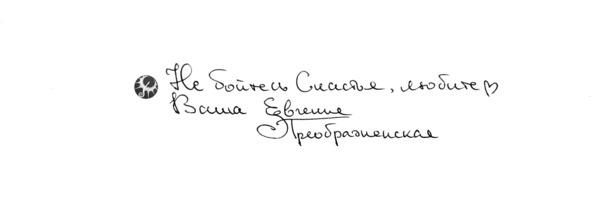 Не бойтесь Счастья, любите♡
Ваша Евгение
Преображенская